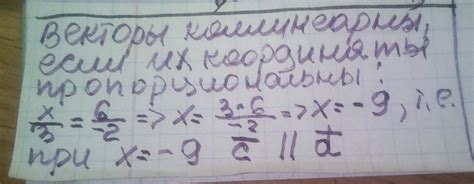 Векторы коллинеарны,
если их координаты
пропорциональны:
x/3 = 6/-2 => x = 3·6/-2 => x = -9, т.е.
при x = -9 c̅ || d̅